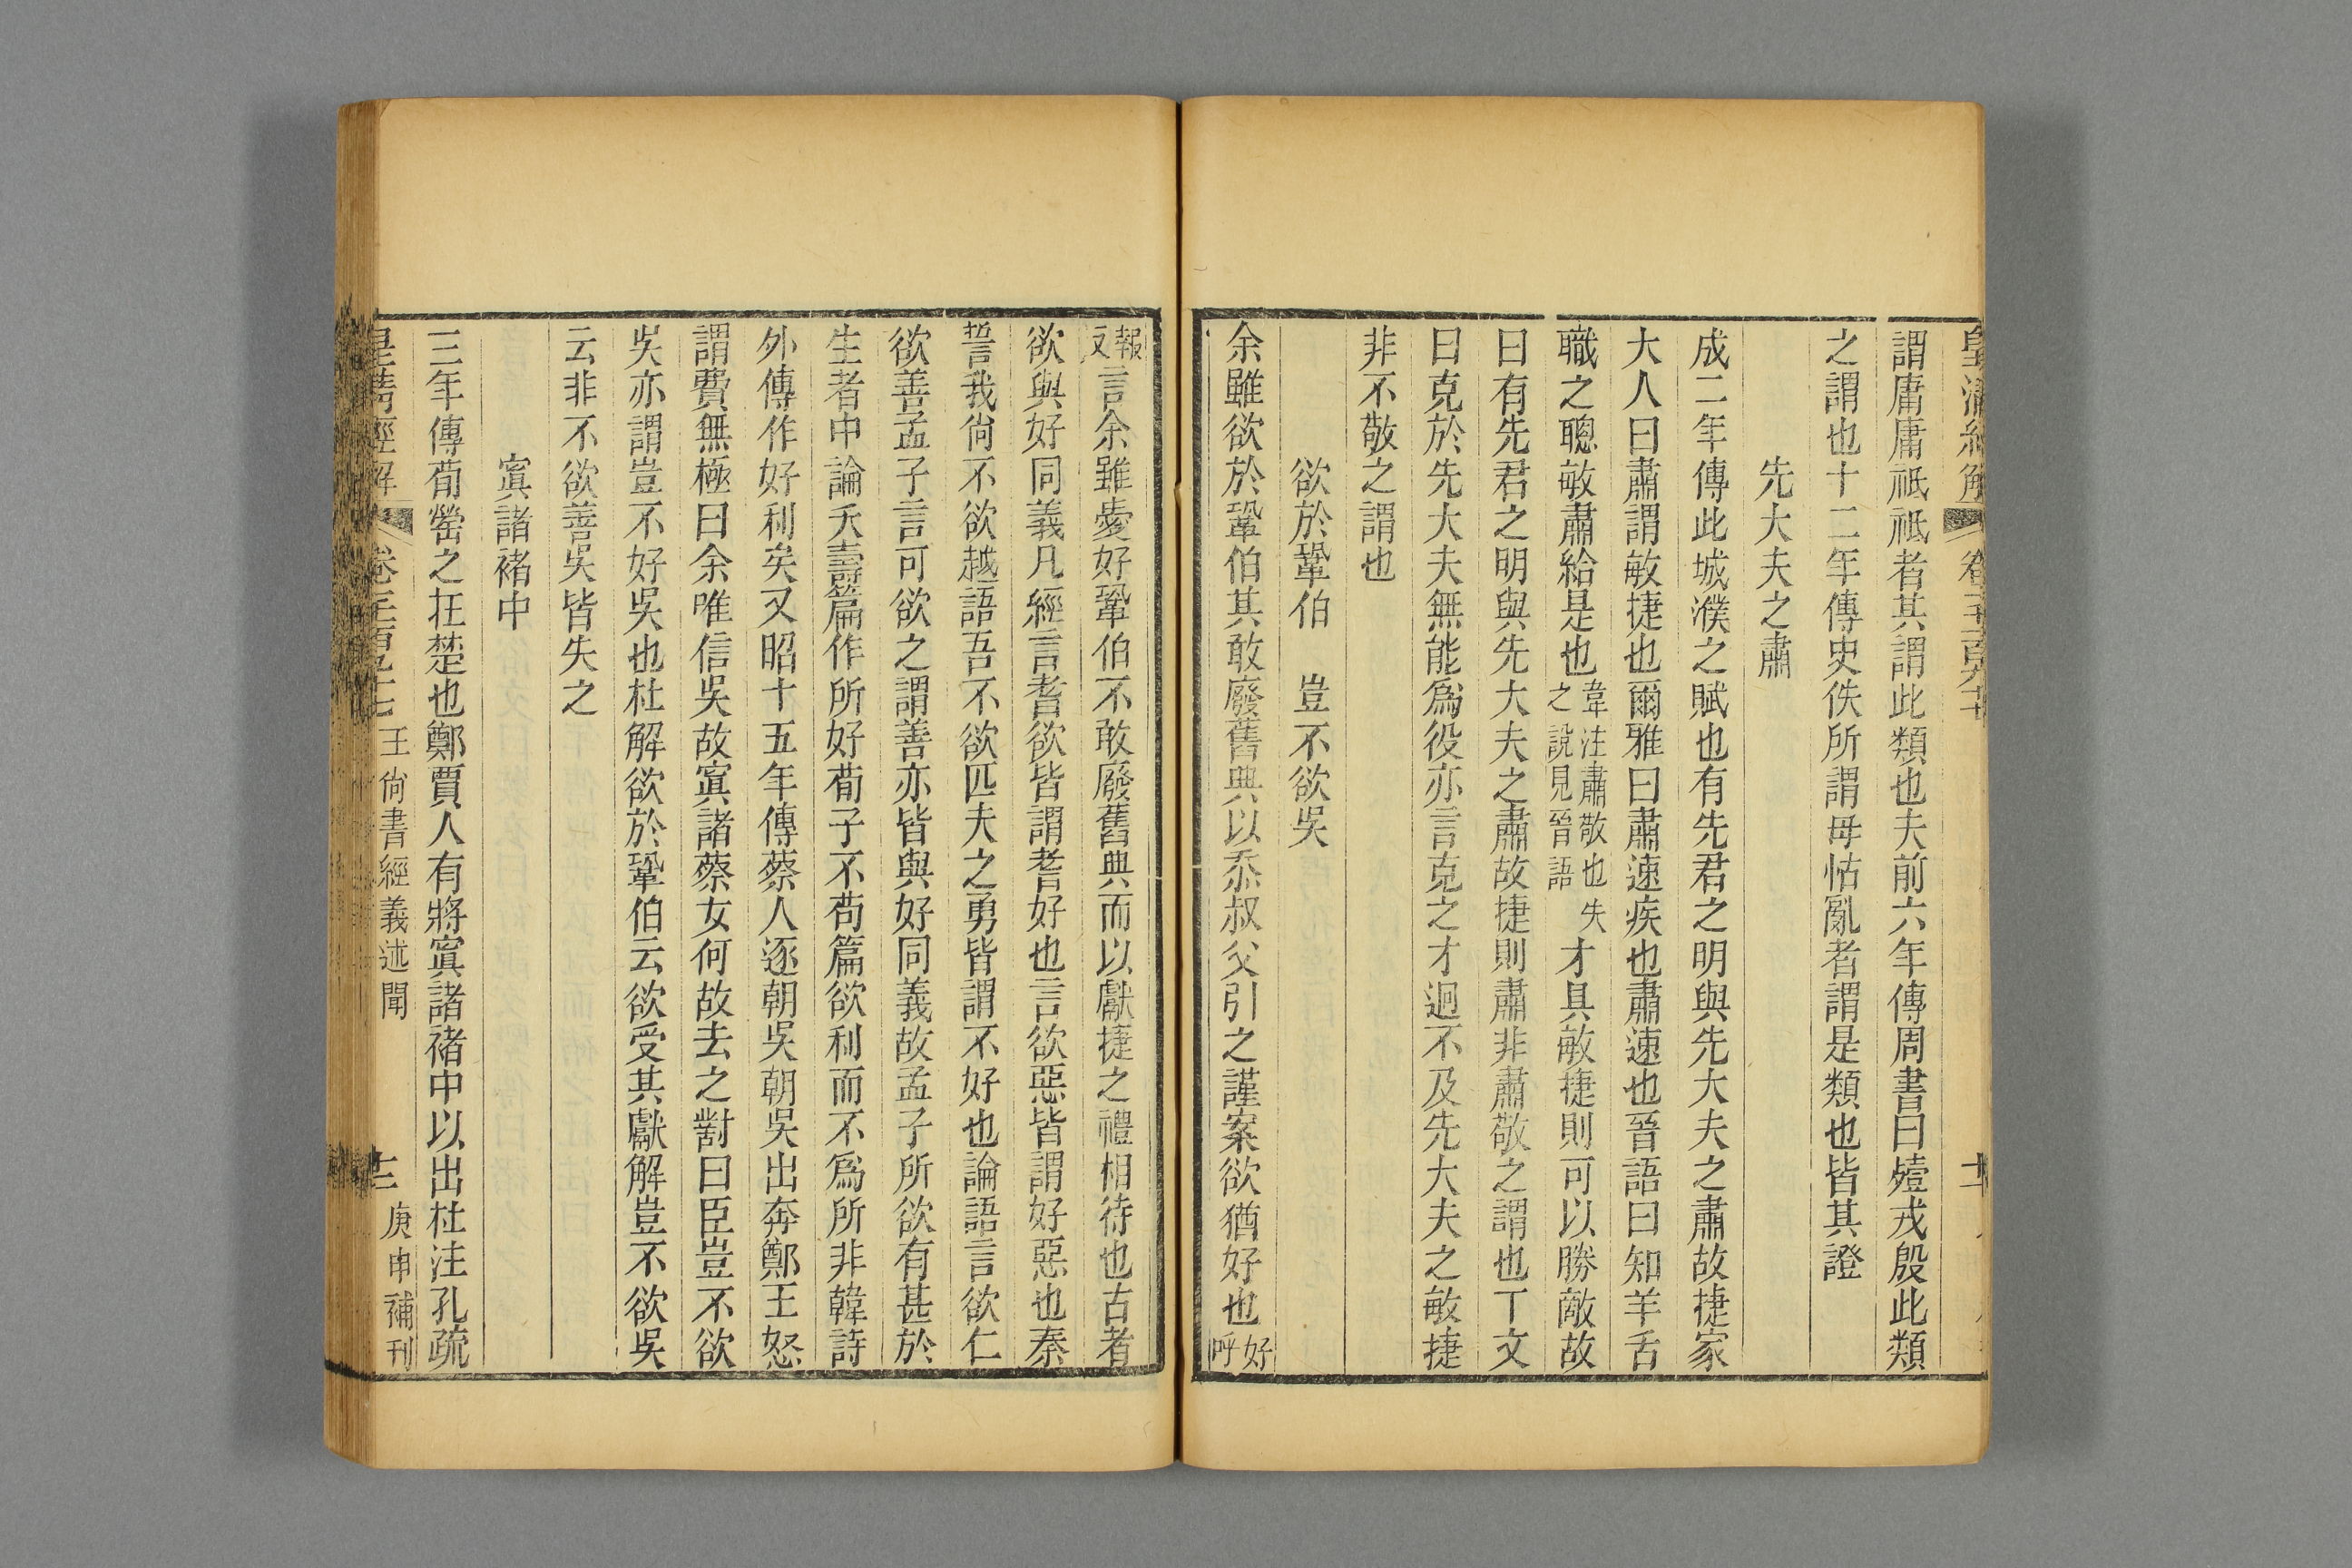 皇清經解 卷 十一
謂庸庸祗祗者其謂此類也夫前六年傳周書曰殪戎殷此類
之謂也十二年傳史佚所謂毋怙亂者謂是類也皆其證
先大夫之肅
成二年傳此城濮之賦也有先君之明與先大夫之肅故捷家
大人曰肅謂敏捷也爾雅曰肅速疾也肅速也晉語曰知羊舌
職之聰敏肅給是也韋注肅敬也失之說見晉語才具敏捷則可以勝敵故
曰有先君之明與先大夫之肅故捷則肅非肅敬之謂也丅文
曰克於先大夫無能爲役亦言克之才迥不及先大夫之敏捷
非不敬之謂也
欲於鞏伯 豈不欲吳
余雖欲於鞏伯其敢廢舊典以忝叔父引之謹案欲猶好也好呼
報反言余雖愛好鞏伯不敢廢舊典而以獻捷之禮相待也古者
欲與好同義凡經言耆欲皆謂耆好也言欲惡皆謂好惡也秦
誓我尙不欲越語吾不欲匹夫之勇皆謂不好也論語言欲仁
欲善孟子言可欲之謂善亦皆與好同義故孟子所欲有甚於
生者中論夭壽篇作所好荀子不苟篇欲利而不爲所非韓詩
外傳作好利矣又昭十五年傳蔡人逐朝吳朝吳出奔鄭王怒
謂費無極曰余唯信吳故寘諸蔡女何故去之對曰臣豈不欲
吳亦謂豈不好吳也杜解欲於鞏伯云欲受其獻解豈不欲吳
云非不欲善吳皆失之
寘諸褚中
三年傳荀罃之在楚也鄭賈人有將寘諸褚中以出杜注孔疏
皇淸經解 卷 王尙書經義述聞 十二 庚申補刊